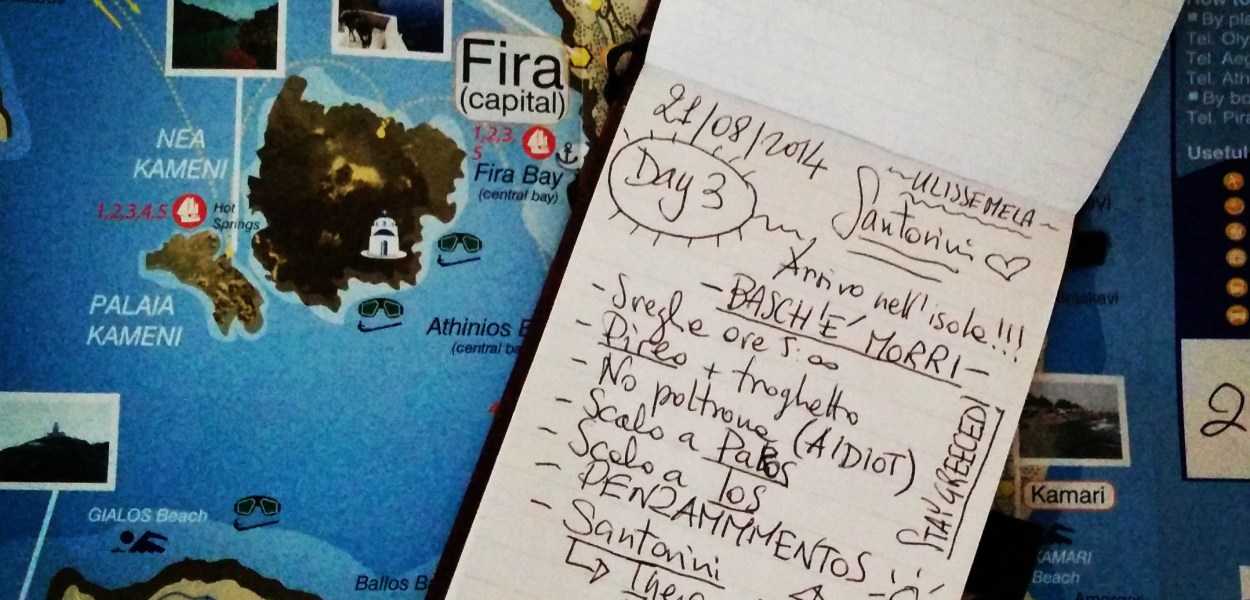 Fira
(capital)
NEA
KAMENI
1,2,3,
5
Fira Bay
(central bay)
1,2,3,4,5
Hot
Springs
PALAIA
KAMENI
Athinios
(central
GIALOS Beach
Ballos
21/08/2014
Day 3
~ULISSEMELA~
Santorini
Arrivo nell'isola!!!
-BASCHLÉ MORRI-
- Sveglie ore 5:00
- Pireo + traghetto
- No poltrona (AIDIOT)
- Scalo a Paros
- Scalo a Ios
- PENZAMMMENTOS
- Santorini
Thera
STAYGREECED!
How to
By pla
Tel. Oly
Tel. Aeg
Tel. Ath
By bo
Tel. Pira
Useful
2
Kamari
KAMARI
Beach